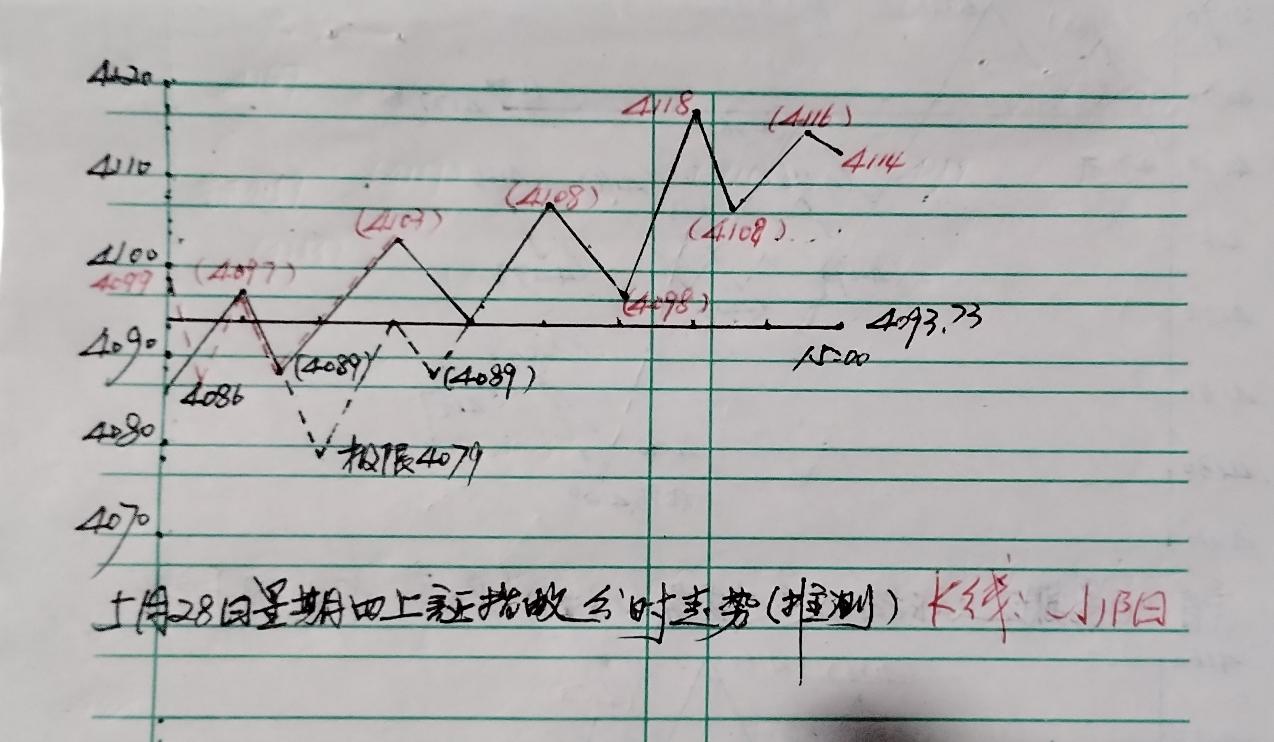 4120
4118
(4116)
4114
4110
(4108)
(4108)
(4107)
4100
4099
(4097)
(4098)
4093.73
15:00
4090
(4089)
(4089)
4086
4080
极限4079
4070
5月28日星期四上证指数分时走势(推测) K线:小阳